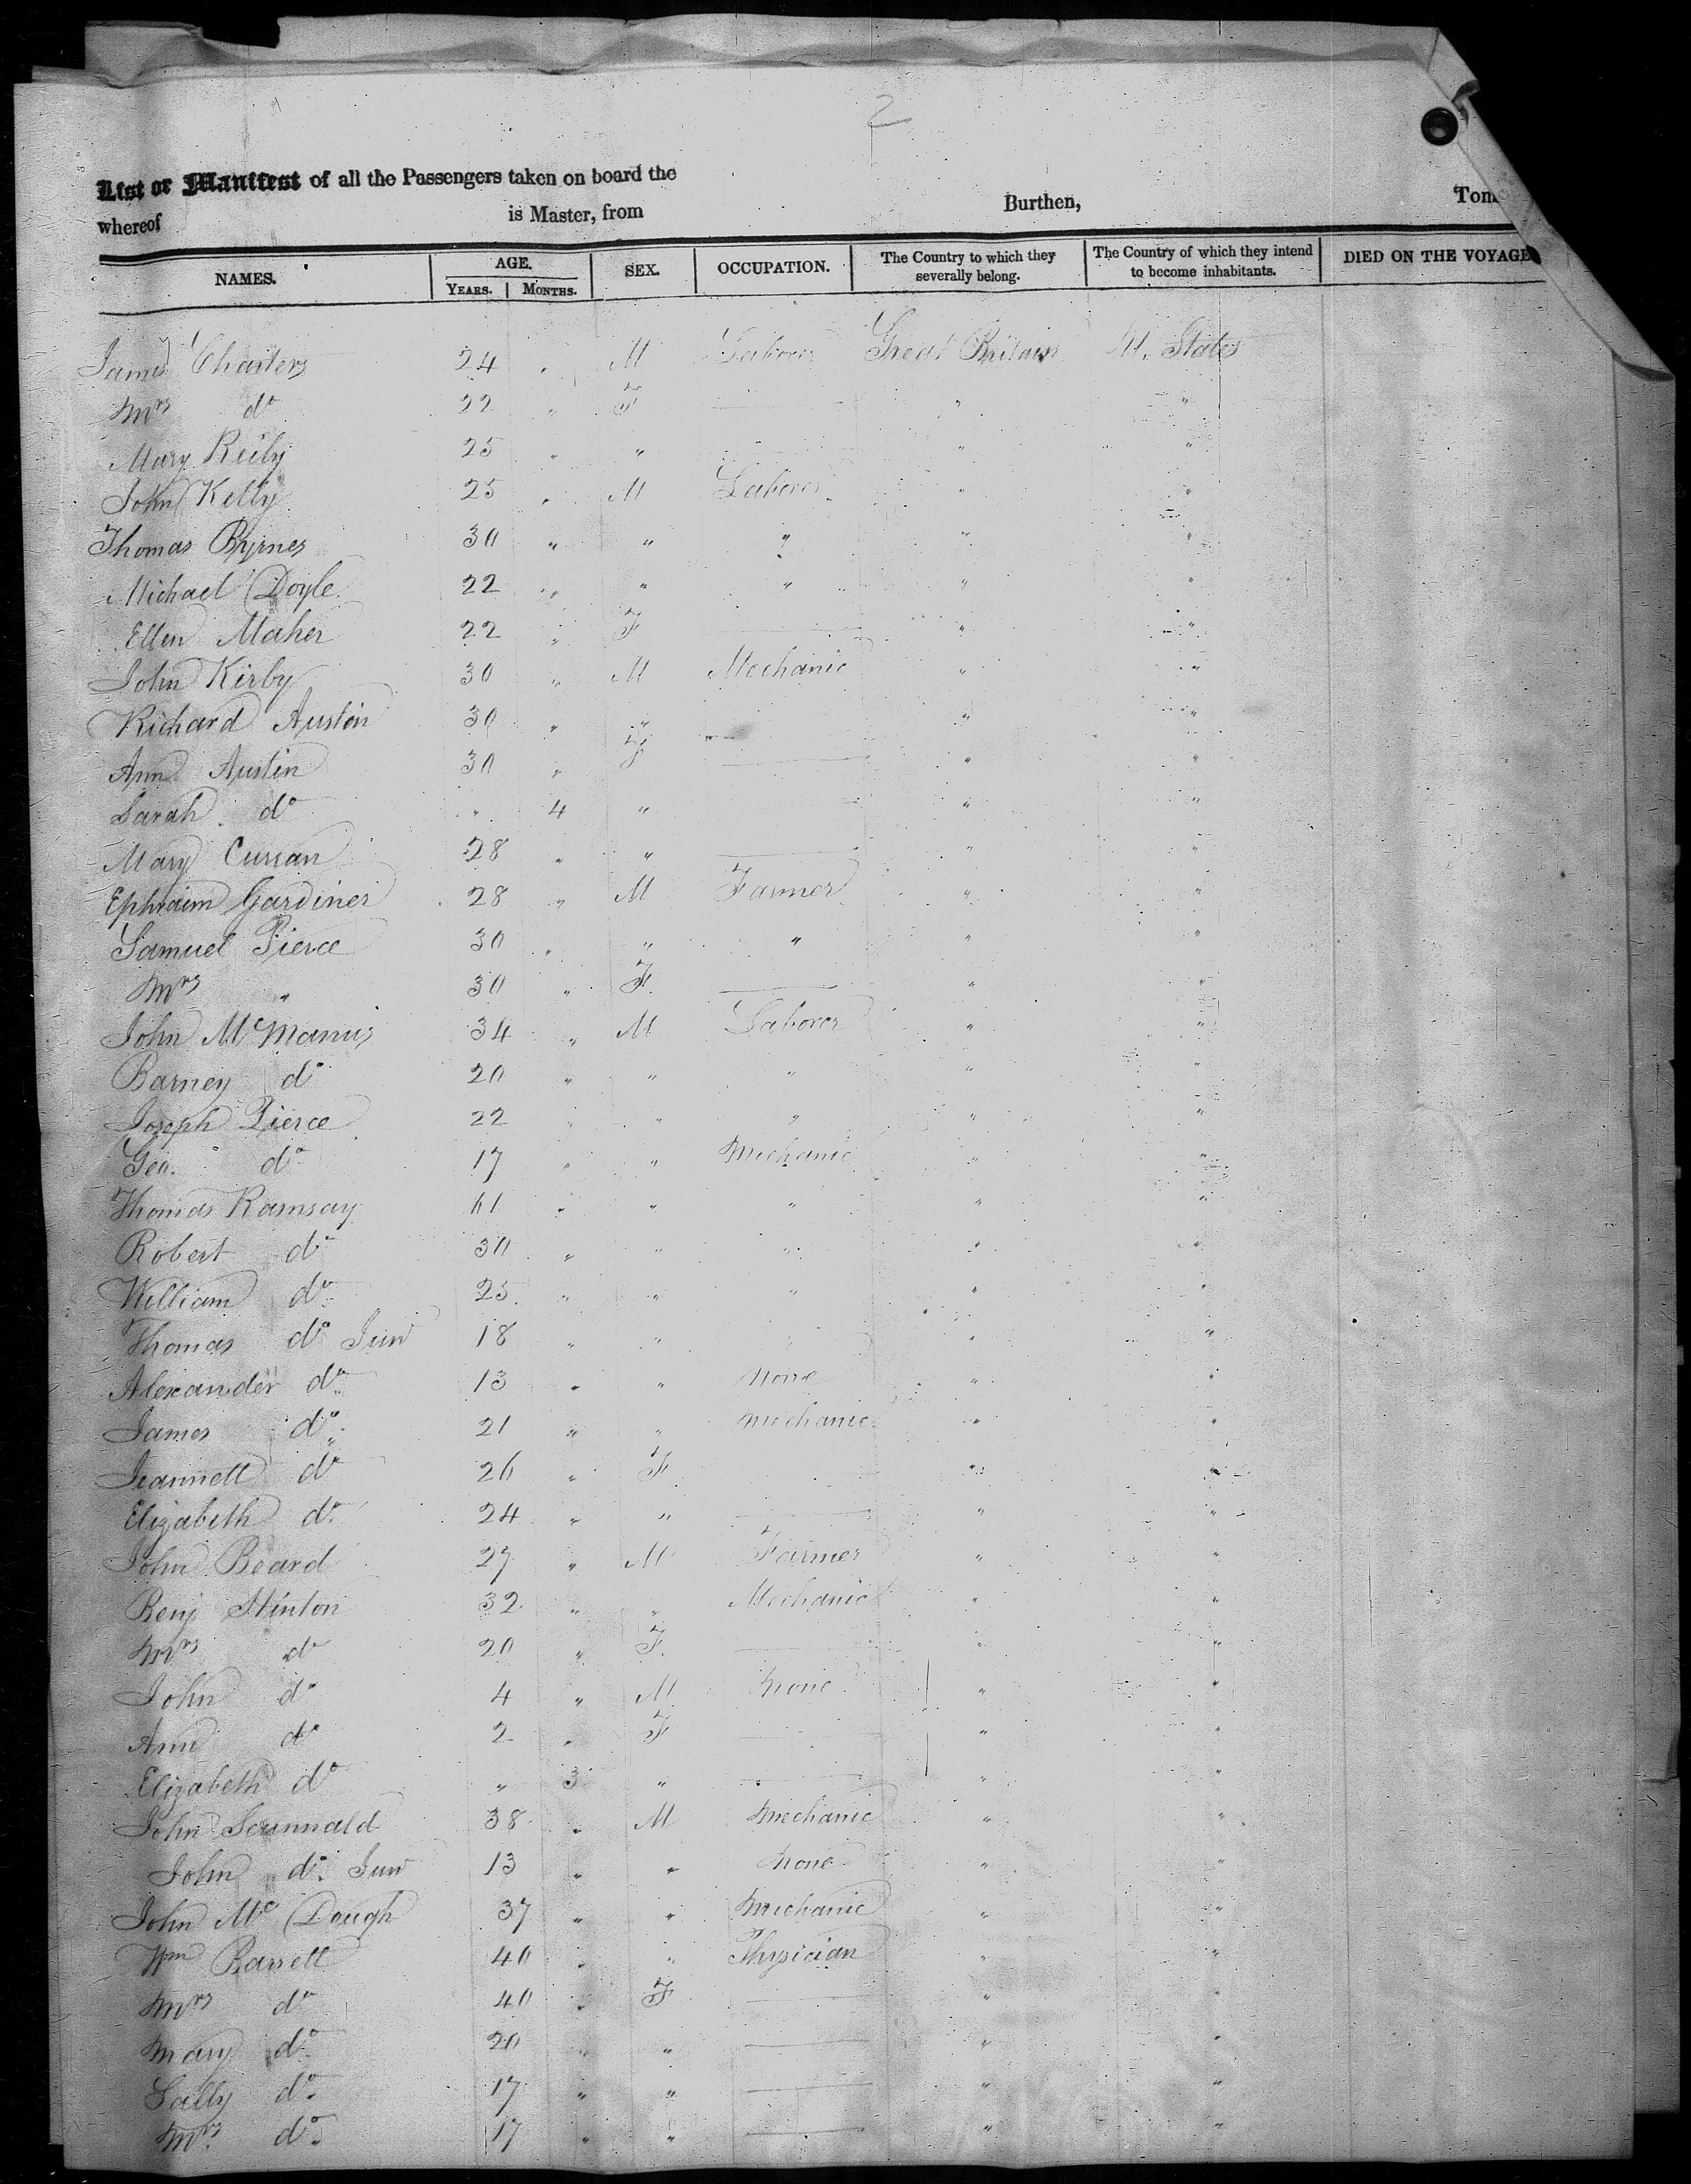 2
List or Manifest of all the Passengers taken on board the
whereof is Master, from Burthen, Tons
NAMES. AGE. YEARS. MONTHS. SEX. OCCUPATION. The Country to which they severally belong. The Country of which they intend to become inhabitants. DIED ON THE VOYAGE
James Charters 24 " M Laborer Great Britain U. States
Mrs do 22 " F — " "
Mary Reily 25 " " — " "
John Kelly 25 " M Laborer " "
Thomas Byrnes 30 " " " " "
Michael Doyle 22 " " " " "
Ellen Maher 22 " F — " "
John Kirby 30 " M Mechanic " "
Richard Austin 30 " " " "
Ann Austin 30 " F — " "
Sarah do " 4 " — " "
Mary Curran 28 " " — " "
Ephraim Gardiner 28 " M Farmer " "
Samuel Pierce 30 " " " " "
Mrs " 30 " F — " "
John McManus 34 " M Laborer " "
Barney do 20 " " " " "
Joseph Pierce 22 " " " " "
Geo. do 17 " " Mechanic " "
Thomas Ramsay 61 " " " " "
Robert do 30 " " " " "
William do 25 " " " " "
Thomas do Junr 18 " " " " "
Alexander do 13 " " None " "
James do 21 " " Mechanic " "
Jeannett do 26 " F " "
Elizabeth do 24 " " — " "
John Beard 27 " M Farmer " "
Benj Hinton 32 " " Mechanic " "
Mrs do 20 " F — " "
John do 4 " M None " "
Ann do 2 " F — " "
Elizabeth do " 3 " — " "
John 38 " M Mechanic " "
John do Junr 13 " " None " "
John Mc Dough 37 " " Mechanic " "
Wm Barrett 40 " " Physician " "
Mrs do 40 " F — " "
Mary do 20 " " — " "
Sally do 17 " " — " "
Mrs. do 17 " " — " "